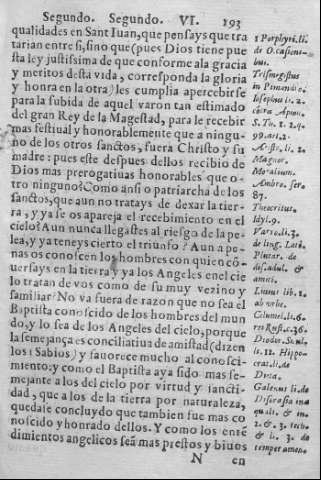 Segundo. Segundo. VI. 193
qualidades en Sant Iuan, que pensays que tra
tarian entre si, sino que (pues Dios tiene pue
sta ley justissima de que conforme ala gracia
y meritos desta vida, corresponda la gloria
y honra en la otra) les cumplia apercebirse
para la subida de aquel varon tan estimado
del gran Rey de la Magestad, para le recebir
mas festiual y honorablemente que a ningu-
no de los otros sanctos, fuera Christo y su
madre: pues este despues dellos recibio de
Dios mas prerogatiuas honorables que o-
tro ninguno? Como ansi o patriarcha de los
sanctos, que aun no tratays de dexar la tier-
ra, y ya se os apareja el recebimiento en el
cielo? Aun nunca llegastes al riesgo de la pe-
lea, y ya teneys cierto el triunfo? Aun ape-
nas os conoscen los hombres con quien cõ
uersays en la tierra y ya los Angeles en el cie
lo tratan de vos como de su muy vezino y
familiar? No va fuera de razon que no sea el
Baptista conoscido de los hombres del mun
do, y lo sea de los Angeles del cielo, porque
la semejança es conciliatiua de amistad (dizen
los Sabios) y fauorece mucho al conosci-
miento: y como el Baptista aya sido mas se-
mejante a los del cielo por virtud y sancti-
dad, que a los de la tierra por naturaleza,
quedase concluydo que tambien fue mas co
noscido y honrado dellos. Y como los entẽ
dimientos angelicos seã mas prestos y biuos
N en
1 Porphyri. li.
de O. casienti-
bus.
Trismegistus
in Pemandro.
Iosephus li. 2.
cõtra Apion.
S. Th. 1. 2. q.
99. art. 2.
Aristo. li. 2.
Magnor.
Moralium.
Ambro. ser.
87.
Theocritus.
Idyl. 9.
Varro li. 3.
de ling. Lati.
Plutar. de
discr. adul. &
amici.
Liuius lib. 1.
ab urbe.
Columel. li. 6.
res Rust. c. 36.
Diodor. Sicul.
li. 12. Hippo-
crat. li. de
Dieta.
Galenus li. de
Discrasia inæ
quali. & in
2. & 3. tech.
& li. 3. de
temperamen.